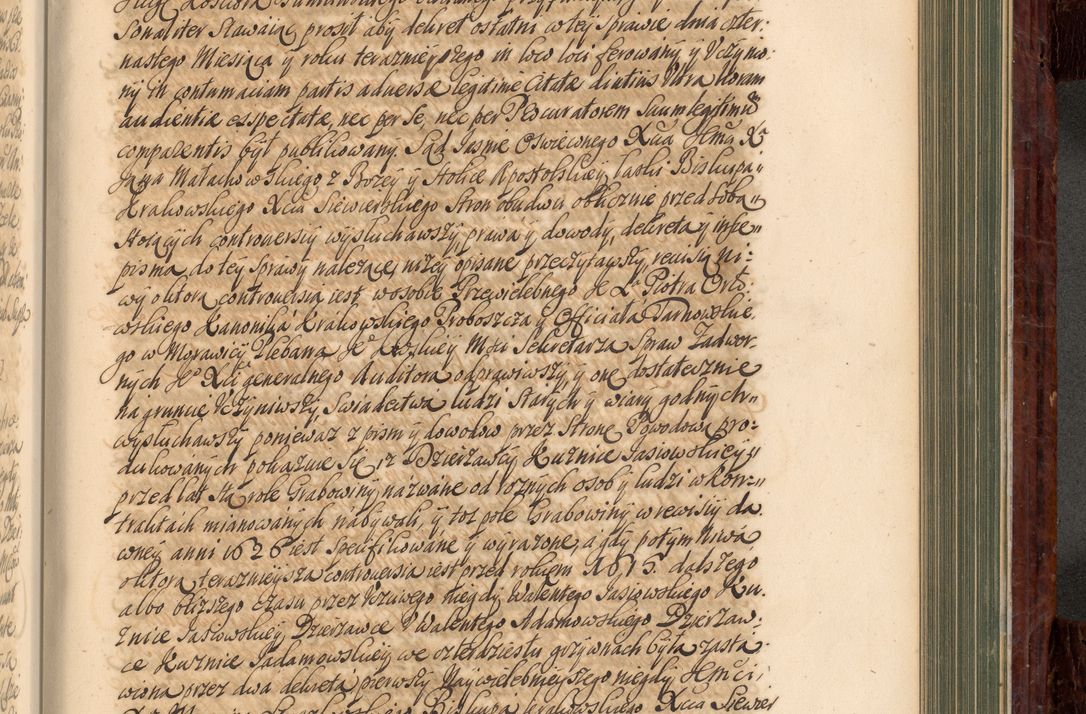 sonaliter stawaiąc, prosił aby dekret ostatni w tey sprawie dnia czter-
nastego Miesiąca y roku teraznieyszego in loco loci ferowany y Uczynio-
ny in contumaciam partis adversæ legitime Citatæ diutius Ultra horam
audientiæ expectatæ, nec per se, nec per Procuratorem suum legitimũ
comparentis był publikowany. Sąd Jasnie Oswieconego Xcia Jmci X
Jana Małachowskiego z Bozey y Stolice Apostolskiey łaski Biskupa
Krakowskiego Xcia Siewierskiego Stron obudwu oblicznie przed Sobą
Stoiących controuersiy wysłuchawszy, prawa y dowody, dekreta y insze
pisma do tey sprawy nalezące nizey opisane przeczytawszy rewisią ni-
wy o ktorą controuersia iest w osobie Przewielebnego Je X Piotra Orło-
wskiego Kanonika Krakowskiego Proboszcza y Officiała Tarnowskie
go w Morawicy Plebana Je Krolskiey Msci Sekretarza Spraw Zadwor-
nych Je Xcia generalnego Auditora odprawiwszy, y one dostatecznie
na gruncie Uczyniwszy, Swiadectwa ludzi Starych y wiary godnych
wysłuchawszy poniewaz z pism y dowodow przez Strone Powodową pro-
dukowanych pokazuie się, iz Dzierzawcy Kuznice Jasiowskiey
przed lat sta role Grabowiny nazwane od roznych osob y ludzi w kon-
traktach mianowanych nabywali, y toz pole Grabowiny w rewisiy da
wney anni 1626 iest specifikowane y wyrazone, a gdy potym Niwa
o ktorą teraznieysza controuersia iest przed rokiem 1615. dalszego
albo blizszego czasu przez Uczciwego niegdy Walentego Jasiowskiego Ku-
znice Jasiowskiey Dzierzawce U Walentego Adamowskiego Dzierzaw-
ce Kuznice Jadamowskiey we czterdziestu grzywnach była zasta
wiona przez dwa dekreta, pierwszy Naywielebnieyszego niegdy Jmci
Biskupa Krakowskiego Xcia Siewier